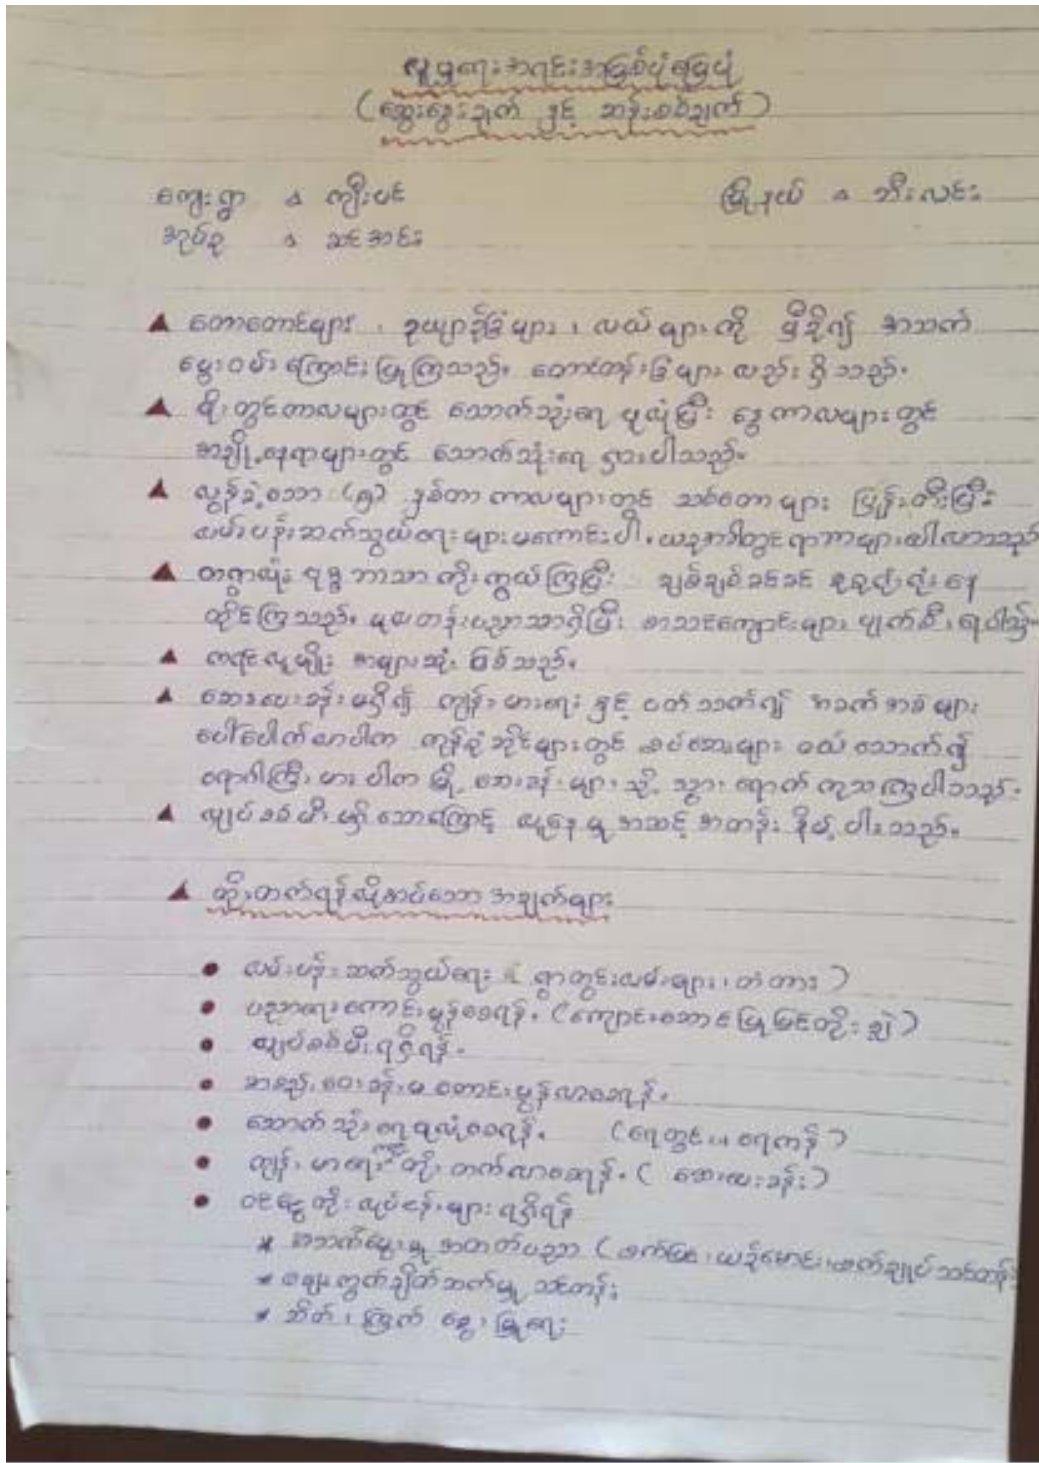 လူမှုရေးအရင်းအမြစ်ပုံစံပြပုံ
(ဆွေးနွေးချက် နှင့် ဆန်းစစ်ချက်)
ကျေးရွာ း ကျီးပင် မြို့နယ် း ဘီးလင်း
အုပ်စု း ဆင်အင်း
▲ တောတောင်များ ၊ ဥယျာဉ်ခြံများ ၊ လယ်များကို မှီခို၍ အသက်
မွေးဝမ်းကြောင်းပြုကြသည်။ တောင်တန်းခြံများ လည်း ရှိသည်။
▲ မိုးတွင်ကာလများတွင် သောက်သုံးရေ ဖူလုံပြီး နွေကာလများတွင်
အချို့နေရာများတွင် သောက်သုံးရေ ရှားပါသည်။
▲ လွန်ခဲ့သော (၅) နှစ်တာကာလများတွင် သစ်တောများ ပြုန်းတီးပြီး
လမ်းပန်းဆက်သွယ်ရေးများမကောင်းပါ။
▲ တရွာလုံး ဗုဒ္ဓဘာသာ ကိုးကွယ်ကြပြီး ချစ်ချစ်ခင်ခင် စုစုစည်းစည်း နေ
ထိုင်ကြသည်။ မူလတန်းပညာသာရှိပြီး စာသင်ကျောင်းများ ပျက်စီးရပါသည်။
▲ ကရင်လူမျိုး အများဆုံး ဖြစ်သည်။
▲ ဆေးပေးခန်းမရှိ၍ ကျန်းမာရေး နှင့် ပတ်သက်၍ အခက်အခဲများ
ပေါ်ပေါက်လာပါက ကုန်စုံဆိုင်များတွင် ဆေးများ ဝယ်သောက်၍
ရောဂါကြီးမားပါက မြို့ဆေးခန်းများသို့ သွားရောက်ကုသကြပါသည်။
▲ လျှပ်စစ်မီးမရှိသောကြောင့် လူနေမှုအဆင့်အတန်း နိမ့်ပါးသည်။
▲ တိုးတက်ရန်လိုအပ်သောအချက်များ
● လမ်းပန်းဆက်သွယ်ရေး (ရွာတွင်းလမ်းများ ၊ တံတား)
● ပညာရေးကောင်းမွန်စေရန်။ (ကျောင်းဆောင်မြှုပြင်တိုးချဲ့)
● လျှပ်စစ်မီးရရှိရန်။
● အစည်းဝေးခန်းမ ကောင်းမွန်လာစေရန်။
● သောက်သုံးရေဖူလုံစေရန်။ (ရေတွင်း ၊ ရေကန်)
● ကျန်းမာရေးတိုးတက်လာစေရန်။ (ဆေးပေးခန်း)
● ဝင်ငွေတိုးလုပ်ငန်းများရရှိရန်
* အသက်မွေးမှုအတတ်ပညာ (စက်ပြင် ၊ ယာဉ်မောင်း ၊ စက်ချုပ်သင်တန်း
* ရွေးကွက်ချိတ်ဆက်မှု သင်တန်း
* ဆိတ် ၊ ကြက် မွေးမြူရေး